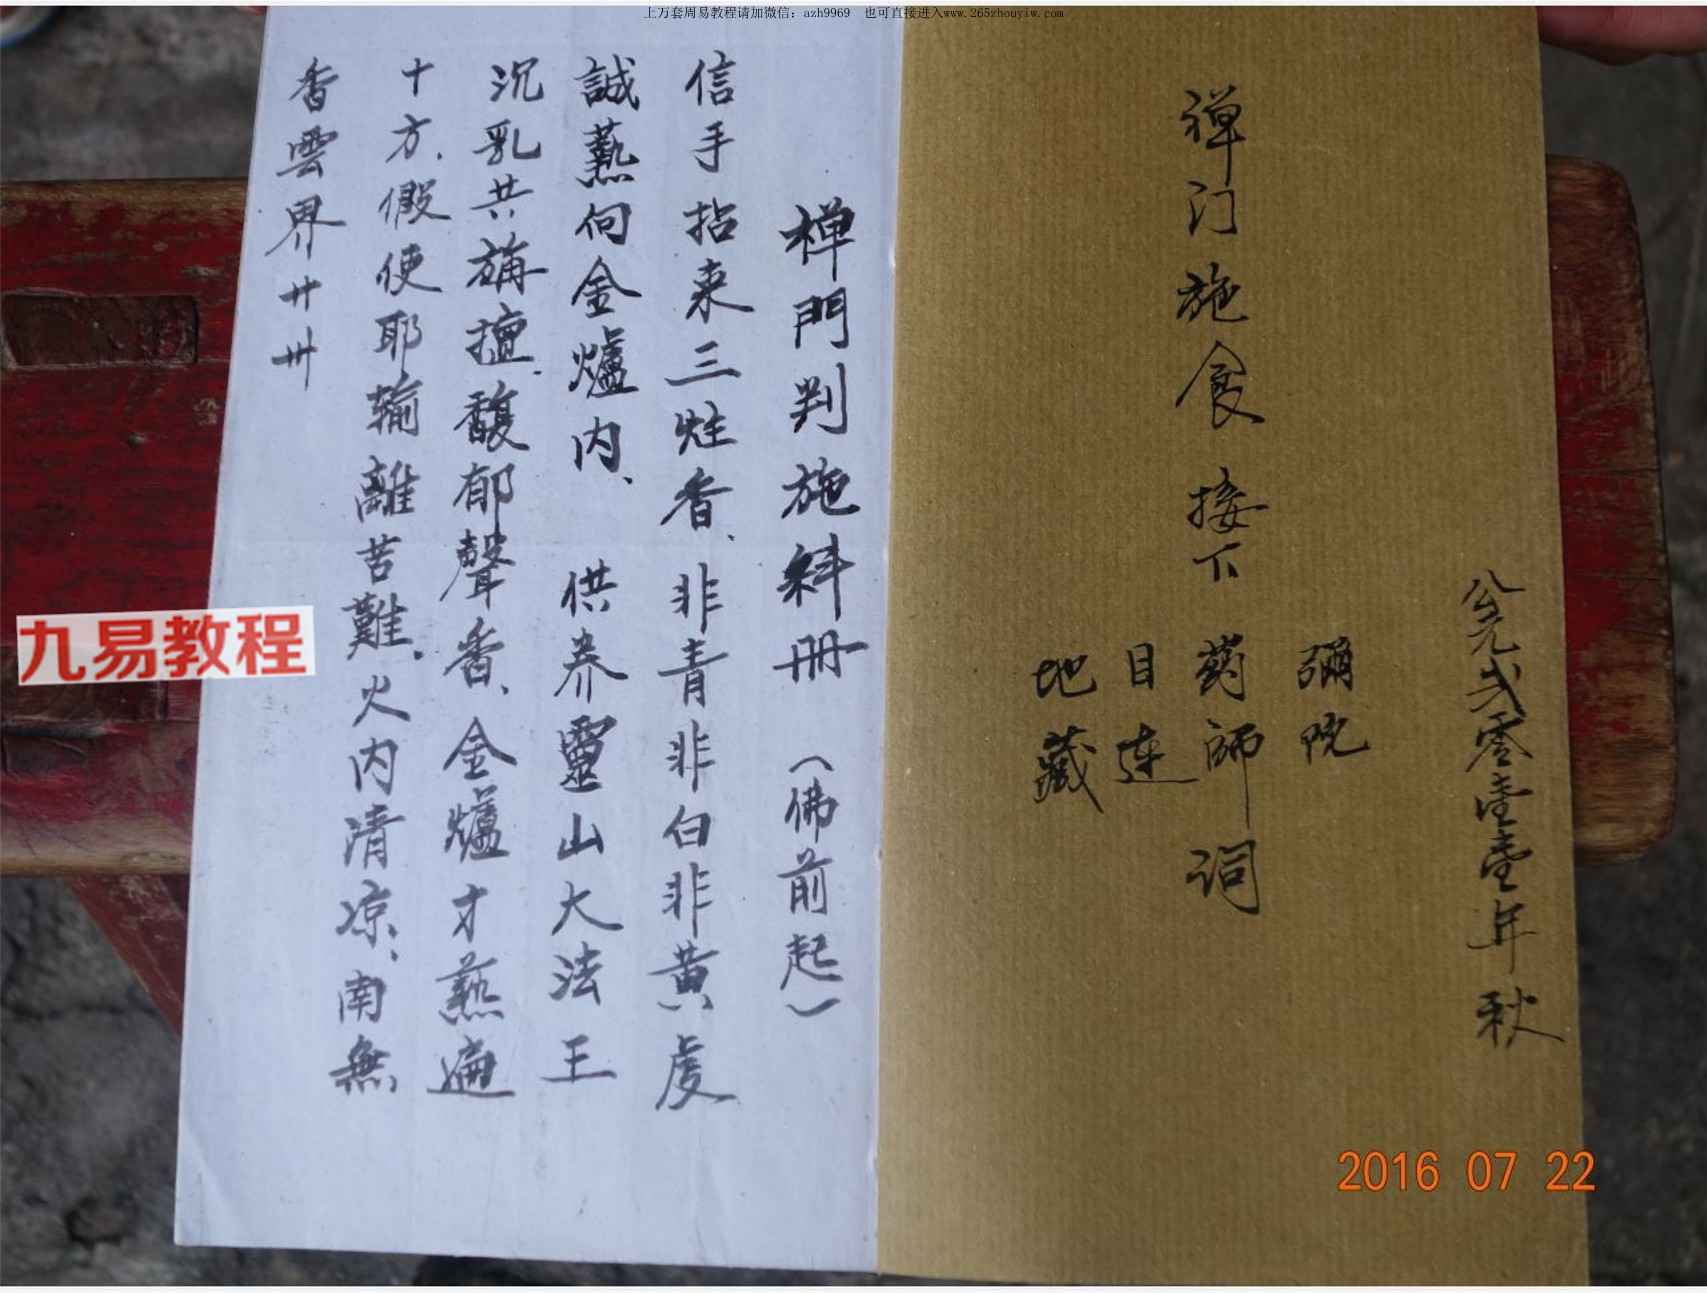 上万套周易教程请加微信：azh9969 也可直接进入www.265zhouyiw.com
公元弍零壹壹年秋
禅门施食 接下 药師 词
彌陀
目连
地藏
禅門判施斛册（佛前起）
信手拈来三炷香、非青非白非黄
誠爇向金爐内、 供养靈山大法王
沉乳共旃檀、馥郁聲香、金爐才爇遍
十方、假使耶輸離苦難、火内清凉、南無
香雲界卄卅
九易教程
2016 07 22